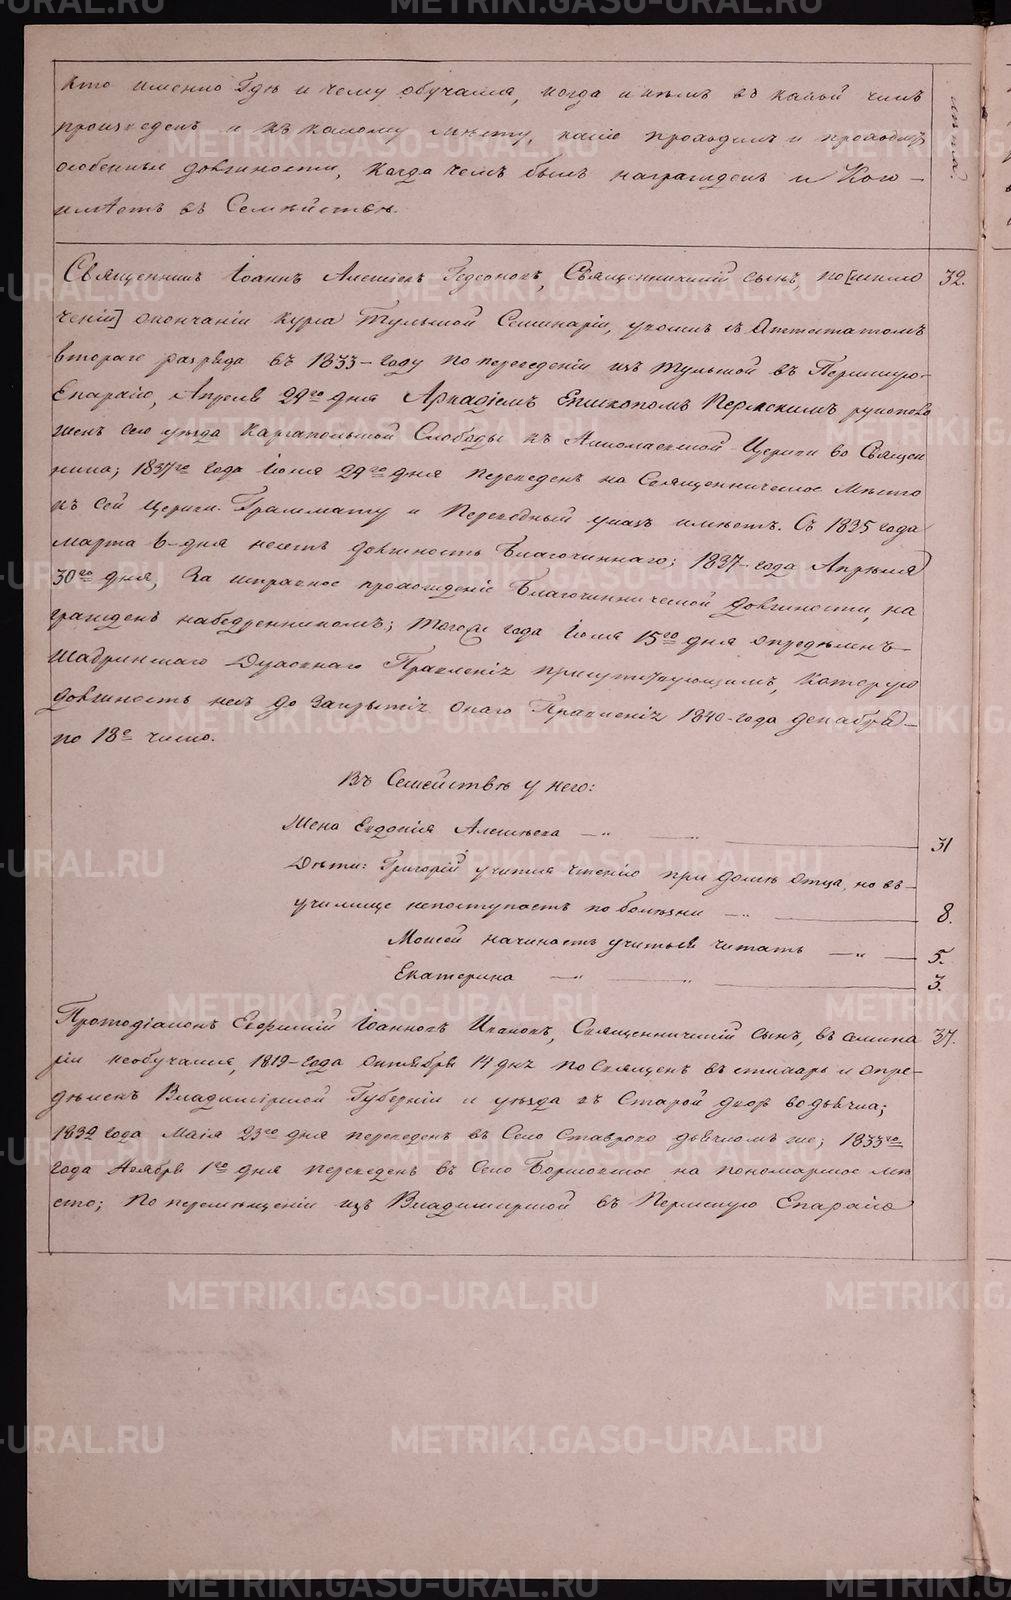 Кто именно Где и чему обучался, когда и кемъ въ какой чинъ
произведенъ и къ какому месту, какiе проходилъ и проходитъ
особенныя должности, когда чемъ былъ награжденъ и Кого –
имѣетъ въ Семействѣ.
Священникъ Iоаннъ Алексiевъ Гедеоновъ, Священническiй сынъ, по [исклю 32.
ченiи] окончанiи курса Тульской Семинарiи, уволенъ съ Аттестатомъ
втораго разряда въ 1833-году по переведенiи изъ Тульской въ Пермскую
Епархiю, Апреля 29го дня Аркадiемъ Епископомъ Пермскимъ рукополо
женъ сего уѣзда Каргапольской Слободы къ церкви во Священ
ника; 1837го года Iюля 29го дня переведенъ на Священническое Место
къ сей церкви. Граммату и Переводный указъ имѣетъ. Съ 1835 года
марта 6-дня несетъ должность Благочиннаго; 1837-года Апреля
30го дня, За исправное прохожденiе Благочиннической должности, на
гражденъ набедренникомъ; тогоже года Iюля 15го дня определенъ
Шадринскаго Духовнаго Правленiя присутствующимъ, которую
должность несъ до закрытiя онаго Правленiя 1840-года декабря –
по 18е число.
Въ Семействѣ у него:
Жена Евдокiя Алексѣева — „ — 31
Дѣти: Григорiй учится чтенiю при домѣ отца, но въ –
училище непоступаетъ по болѣзни — „ — 8.
Моисей начинаетъ учиться читать — „ — 5.
Екатерина — „ — „ — 3.
Протодiаконъ Евфимiй Iоанновъ Ивановъ, Священническiй сынъ, въ семина 37.
рiи необучался, 1819-года Октября 14 дня посвященъ въ стихарь и опре-
дѣленъ Владимiрской Губернiи и уѣзда въ Старой дворъ во дьячка;
1832 года Маiя 23го дня переведенъ въ Село Ставрово дьячкомъ же; 1833го
года Ноября 1го дня переведенъ въ Село на пономарское мѣ
сто; По перемѣщенiи изъ Владимирской въ Пермскую Епархiю
METRIKI.GASO-URAL.RU